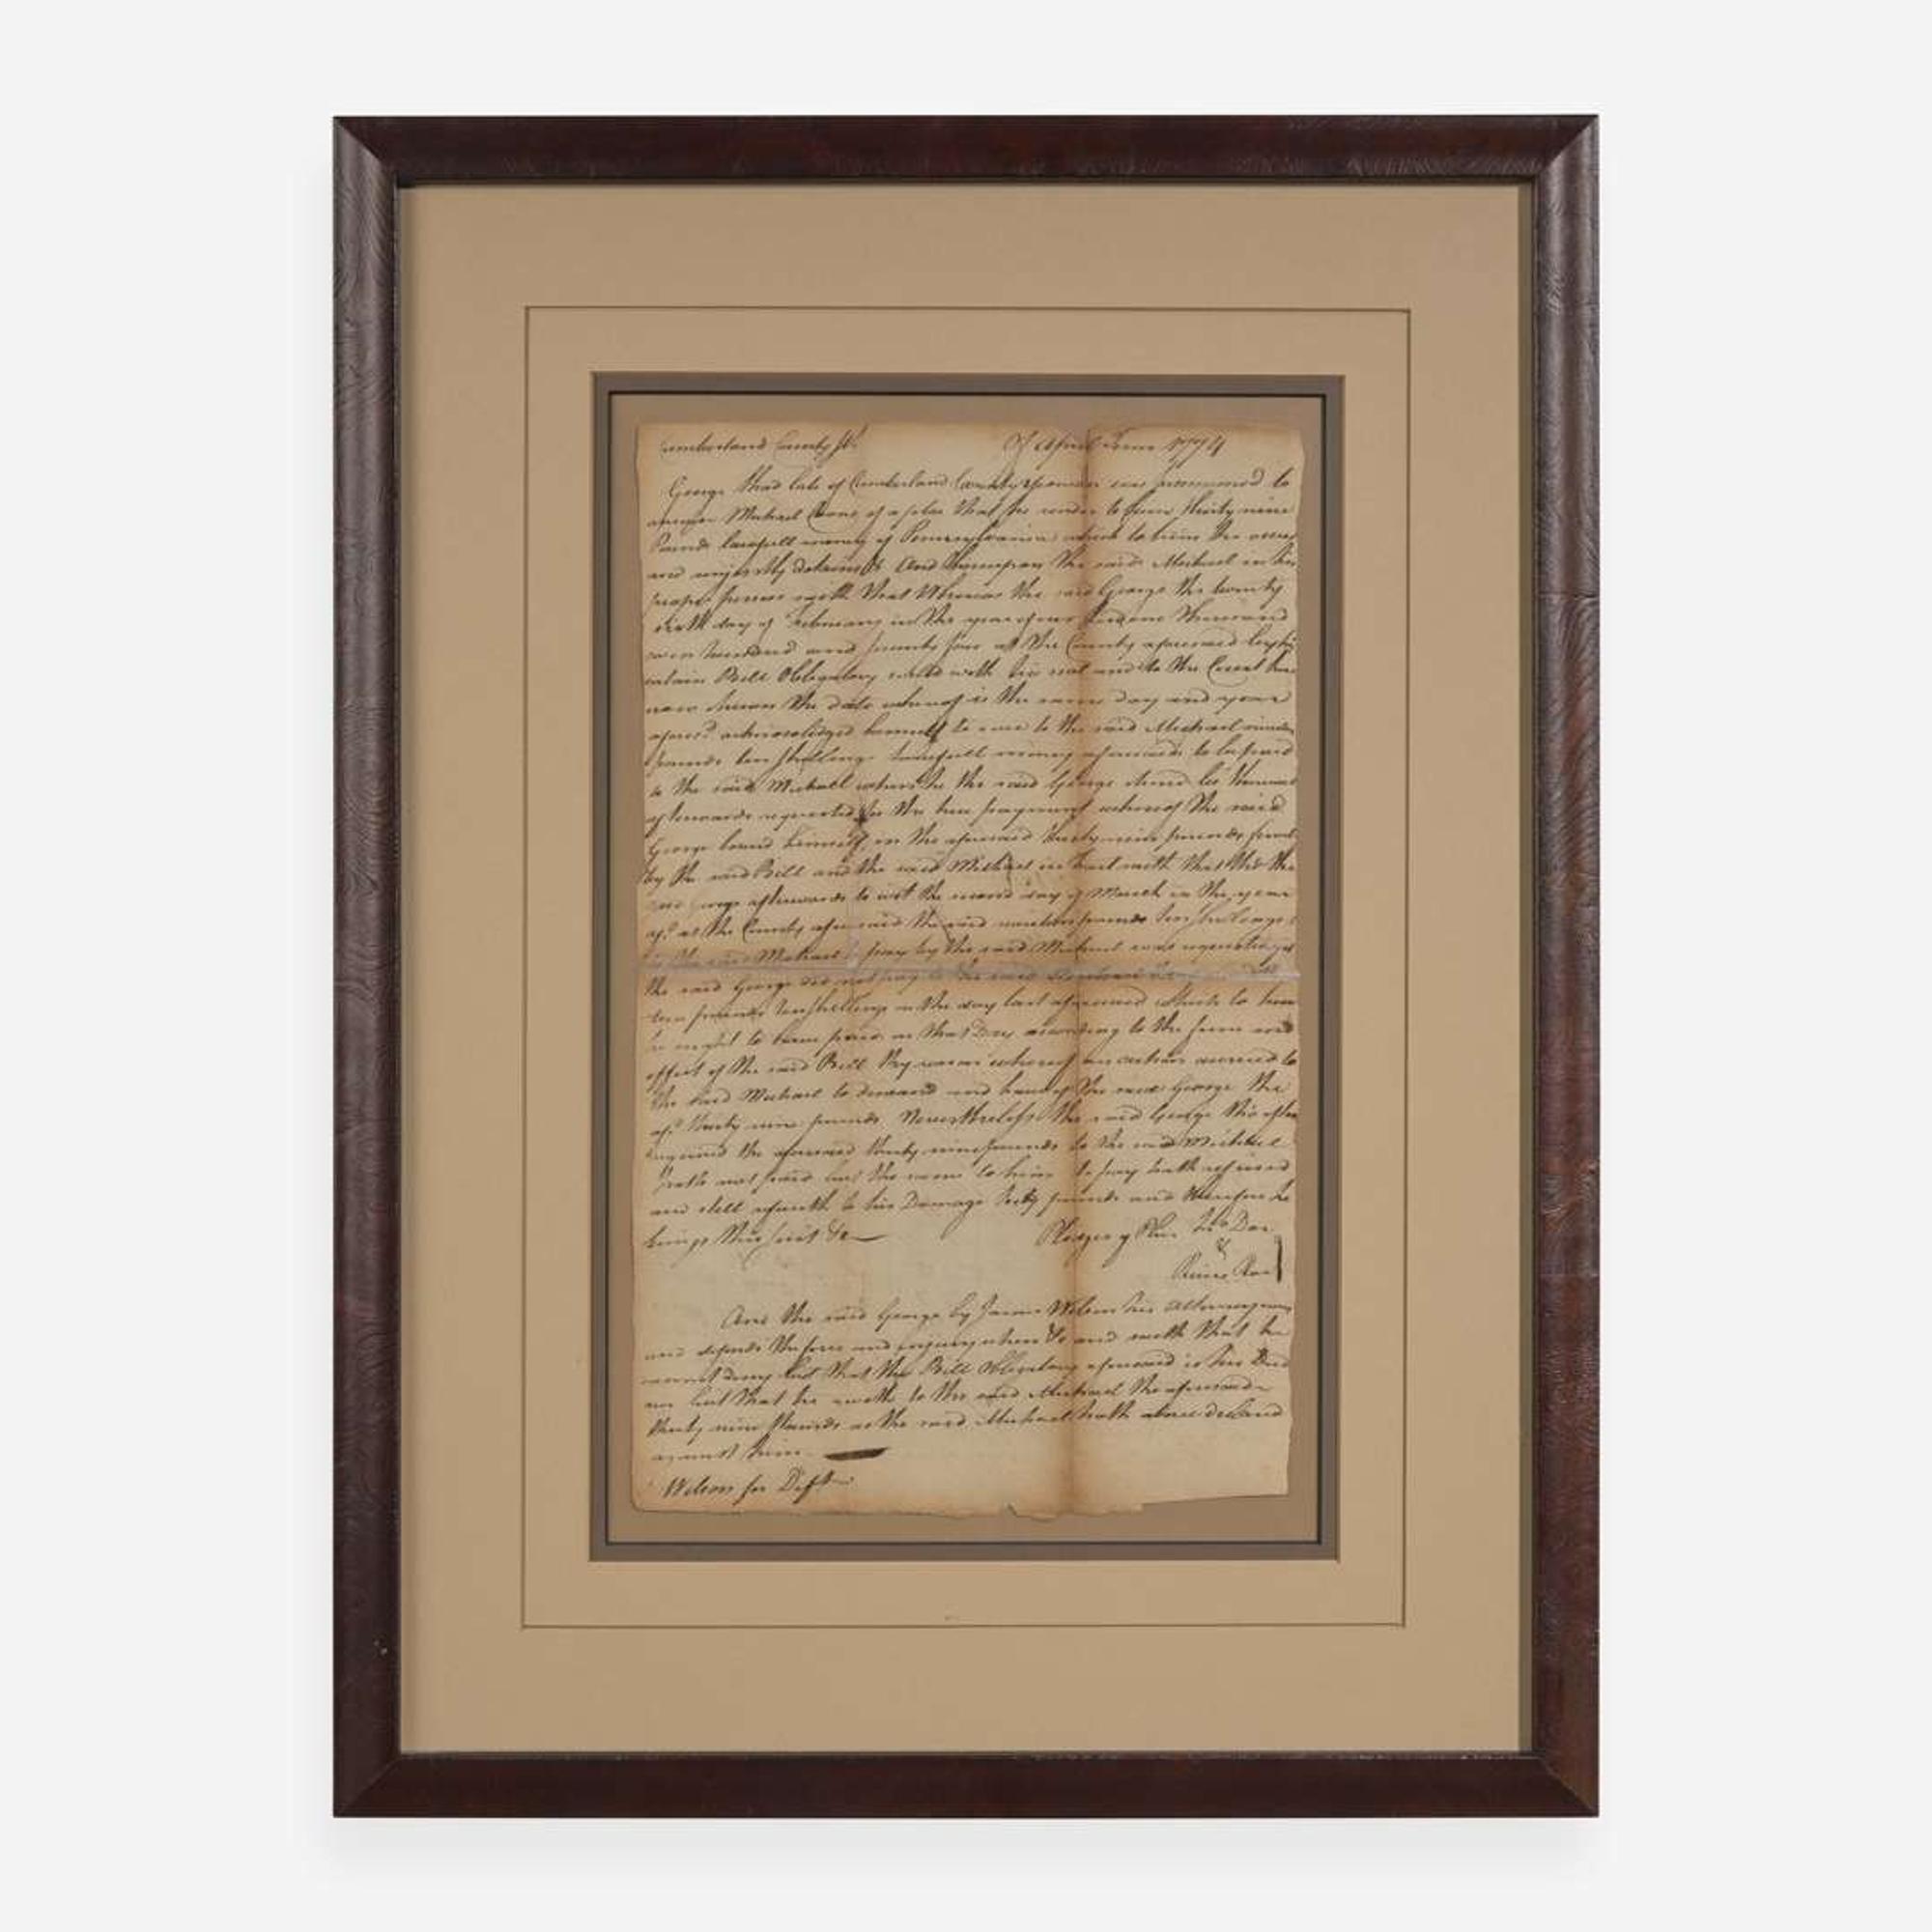 Cumberland County ss. Of April Term 1774
George late of Cumberland County Yeoman was summoned to
answer Michael of a plea that he render to him thirty nine
Pounds lawfull money of Pennsylvania which to him he owes
and unjustly detains &c And thereupon the said Michael in his
proper person saith that Whereas the said George the twenty
sixth day of February in the year of our Lord one thousand
seven hundred and seventy four at the County aforesaid by his
certain Bill Obligatory sealed with his seal and to the Court here
now shewn the date whereof is the same day and year
afores.d acknowledged himself to owe to the said Michael nineteen
pounds ten shillings lawfull money aforesaid to be paid
to the said Michael when the said George should be thereunto
afterwards requested to the true payment whereof the said
George bound himself in the aforesaid thirty nine pounds
by the said Bill and the said Michael in fact saith that tho the
said George afterwards to wit the second day of March in the year
af.d at the County aforesaid the said nineteen pounds ten shillings
to the said Michael to pay by the said Michael was requested yet
the said George did not pay to the said Michael the
teen pounds ten shillings on the day last aforesaid which to him
he ought to have paid on that Day according to the form and
effect of the said Bill by reason whereof an action accrued to
the said Michael to demand and have of the said George the
af.d thirty nine pounds Nevertheless the said George tho often
required the aforesaid thirty nine pounds to the said Michael
hath not paid but the same to him to pay hath refused
and still refuseth to his Damage Sixty pounds and therefore he
brings this suit &c Pledges of Jno Doe
&
Richd Roe
And the said George by James Wilson his attorney comes
and defends the force and injury when &c and saith that he
cannot deny but that the Bill Obligatory aforesaid is his Deed
nor but that he oweth to the said Michael the aforesaid
thirty nine Pounds as the said Michael hath above declared
against him
Wilson for Deft